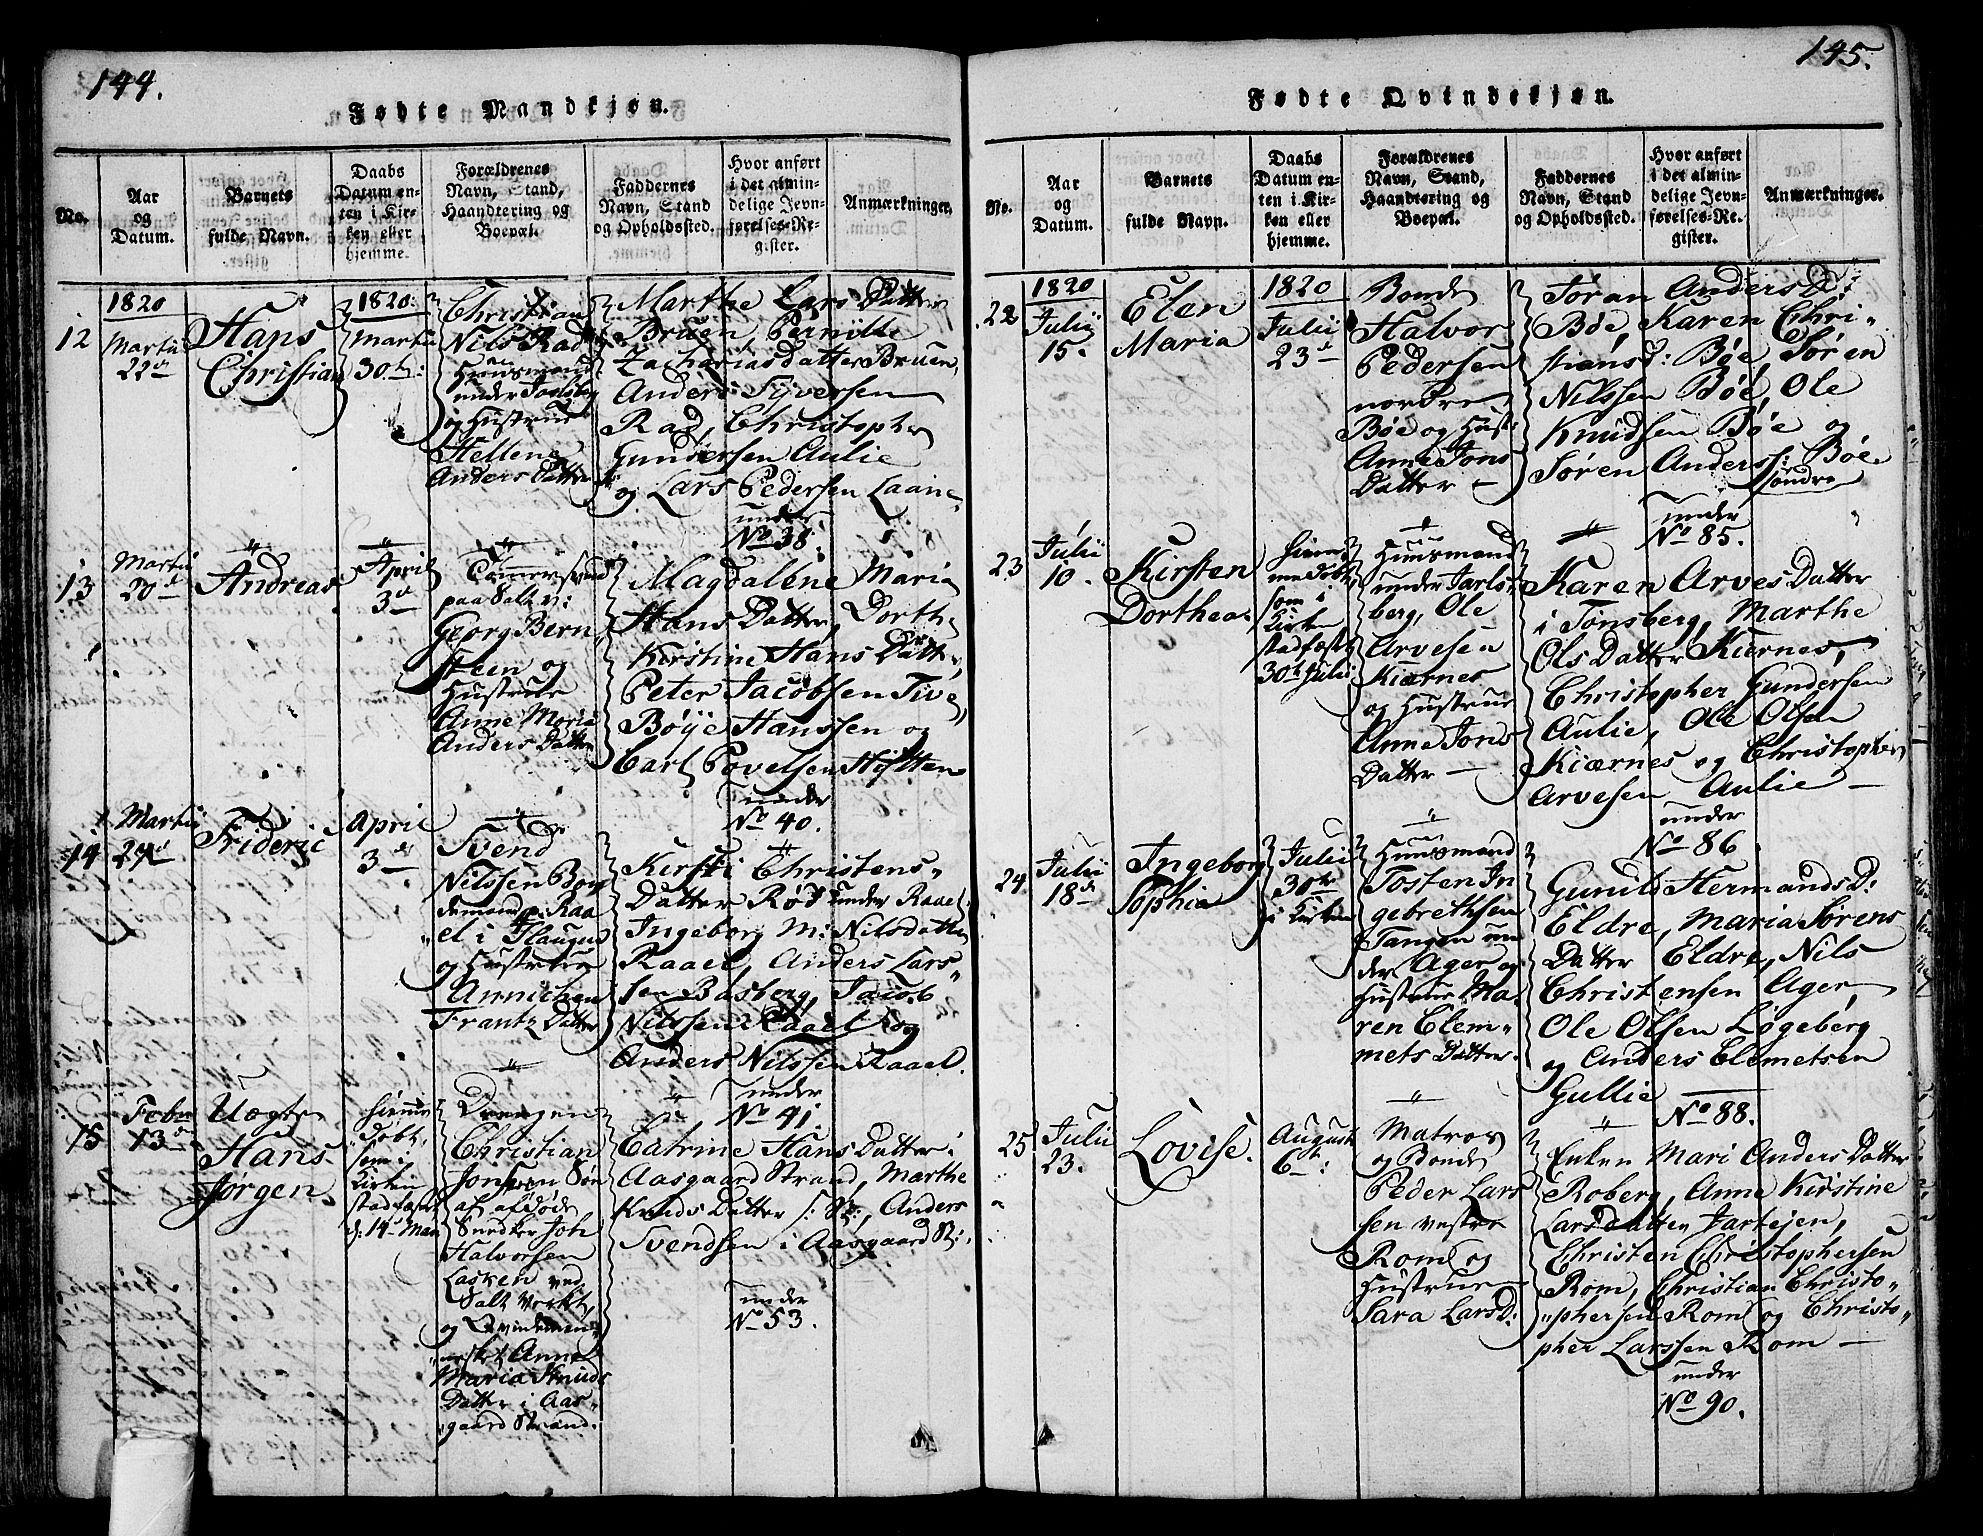 144.
Fødte Mandkjøn.
No.
Aar
og
Datum.
Barnets
fulde Navn.
Daabs
Datum en-
ten i Kir-
ken eller
hjemme.
Forældrenes
Navn, Stand,
Haandtering og
Boepæl.
Faddernes
Navn, Stand
og Opholdssted.
Hvor anført
i det almin-
delige Jevn-
førelses-Re-
gister.
Anmærkninger.
12
1820
Martii
22de
Hans
Christian
1820:
Martii
30th:
Christian
Nils. Rad
Huusmand
under Jarlsberg
og Hustrue
Hellene
Anders Datter
Marthe Lars Datter
Bruen, Pernille
Zacharias datter Bruen,
Anders Syversen
Rad, Christopher
Gundersen Aulie
og Lars Pedersen Laane
under
No 38.
13
Martii
20de
Andreas
April
3de
paa Salt v:
Georg Bern
steen og
Hustrue
Anne Maria
Anders Datter
Magdalene Maria
Hans Datter, Dorth.
Kirstine Hans Datter,
Peter Jacobsen Tive,
Bøye Hanssen og
Carl Povelsen Høftten
under
No 40.
14
Martii
27de
Frideric
April
3de
Svend
Nilssen Bor
demand p. Raa
el i Slaugen
og Hustrue
Annichen
Frantz Datter
Kirsti Christens
Datter Rød under Raael,
Ingeborg M: Nilsdatter
Raael, Anders Lars
sen Basberg, Jacob
Nilssen Raael og
Anders Nilssen Raael.
under
No 41.
15
Febr
13de
Uægte
Hans
Jørgen
hiemme
døbt,
som i
Kirken
stadfæstet
d: 14de Maii
Drengen
Christian
Jonsen Søn
af afdøde
Snedker Joh
Halvorsen
Lasken ved
Salt Verket,
og Qvindemen
nesket Anne
Maria Knuds
Datter i Aas
gaard Strand.
Catrine Hans Datter i
Aasgaard Strand, Marthe
Knuds Datter /: St:, Anders
Svendsen i Aasgaard St:
under
No 53.
145.
Fødte Qvindekjøn.
No.
Aar
og
Datum.
Barnets
fulde Navn.
Daabs
Datum en-
ten i Kir-
ken eller
hjemme.
Forældrenes
Navn, Stand,
Haandtering og
Boepæl.
Faddernes
Navn, Stand
og Opholdssted.
Hvor anført
i det almin-
delige Jevn-
førelses-Re-
gister.
Anmærkninger.
22
1820
Julii
15.
Elen
Maria
1820
Julii
23de
Bonde
Halvor
Pedersen
nordre
Bøe og Hust:
Anne Jons
Datter —
Søran Anders D:
Bøe, Karen Chri-
stiansd: Bøe, Søren
Nilssen Bøe, Ole
Knudsen Bøe og
Søren Anders: Bøe
søndre
under
No 85.
23
Julii
10.
Kirsten
Dorthea
hiem
me døbt,
som i
Kirken
stadfæst
30th Julii
Huusmand
under Jarls
berg, Ole
Arvesen
Kiærnes
og Hustrue
Anne Jons
Datter —
Karen Arves Datter
i Tonsberg, Marthe
Ols Datter Kiærnes,
Christopher Gundersen
Aulie, Ole Olsen
Kiærnes og Christopher
Arvesen Aulie —
under
No 86
24
Julii
18de
Ingeborg
Sophia
Julii
30th
i Kirken
Huusmand
Tosten In
gebrethsen
Tangen un
der Ager og
Hustrue Ma
ren Clem
mets Datter.
Gunild Hermands D:
Eldre, Maria Sørens
Datter Eldre, Nils
Christensen Ager,
Ole Olsen Løgeberg
og Anders Clemetsen
Gullie
No 88.
25
Julii
23.
Lovise.
August
6th:
Matros
og Bonde
Peder Lars
sen vestre
Rom og
Hustrue
Sara Lars D:
Enken Mari Anders Datter
Roberg, Anne Kirstine
Larsdatter Jartejen,
Christen Christophersen
Rom, Christian Christo
phersen Rom og Christo
pher Larssen Rom —
under
No 90.